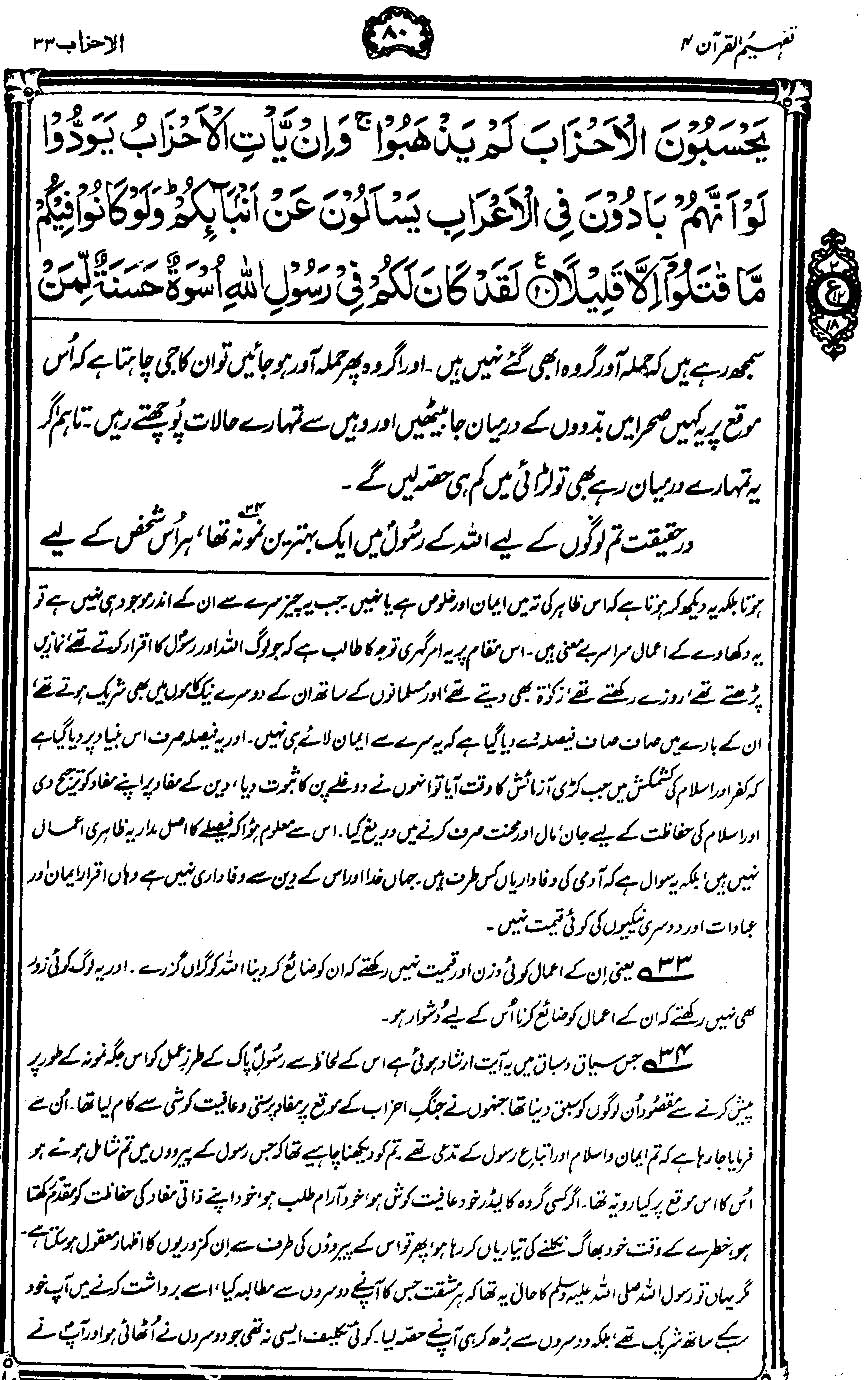 تفہیم القرآن ۴
۸۰
الاحزاب ۳۳
يَحْسَبُوْنَ الْاَحْزَابَ لَمْ يَذْهَبُوْا ۚ وَاِنْ يَّاْتِ الْاَحْزَابُ يَوَدُّوْا
لَوْ اَنَّهُمْ بَادُوْنَ فِى الْاَعْرَابِ يَسْاَلُوْنَ عَنْ اَنْۢبَآئِكُمْ ؕ وَلَوْ كَانُوْا فِيْكُمْ
مَّا قٰتَلُوْۤا اِلَّا قَلِيْلًا ۲۰ ع لَقَدْ كَانَ لَكُمْ فِىْ رَسُوْلِ اللّٰهِ اُسْوَةٌ حَسَنَةٌ لِّمَنْ
۲
ع
۱۲
۱۸
سمجھ رہے ہیں کہ حملہ آور گروہ ابھی گئے نہیں ہیں۔ اور اگر وہ پھر حملہ آور ہو جائیں تو ان کا جی چاہتا ہے کہ اُس
موقع پر یہ کہیں صحرا میں بدّووں کے درمیان جا بیٹھیں اور وہیں سے تمہارے حالات پُوچھتے رہیں۔ تاہم اگر
یہ تمہارے درمیان رہے بھی تو لڑائی میں کم ہی حصّہ لیں گے۔
درحقیقت تم لوگوں کے لیے اللہ کے رسُولؐ میں ایک بہترین نمونہ ۳۴ تھا، ہر اُس شخص کے لیے
ہوتا بلکہ یہ دیکھ کر ہوتا ہے کہ اس ظاہر کی تہ میں ایمان اور خلوص ہے یا نہیں۔ جب یہ چیز سرے سے ان کے اندر موجود ہی نہیں ہے تو
یہ دکھاوے کے اعمال سراسر بے معنی ہیں۔ اس مقام پر یہ امر گہری توجہ کا طالب ہے کہ جو لوگ اللہ اور رسُول کا اقرار کرتے تھے، نمازیں
پڑھتے تھے، روزے رکھتے تھے، زکوٰۃ بھی دیتے تھے، اور مسلمانوں کے ساتھ ان کے دوسرے نیک کاموں میں بھی شریک ہوتے تھے،
ان کے بارے میں صاف صاف فیصلہ دے دیا گیا ہے کہ یہ سرے سے ایمان لائے ہی نہیں۔ اور یہ فیصلہ صرف اس بنیاد پر دیا گیا ہے
کہ کفر اور اسلام کی کشمکش میں جب کڑی آزمائش کا وقت آیا تو انہوں نے دوغلے پن کا ثبوت دیا، دین کے مفاد پر اپنے مفاد کو ترجیح دی
اور اسلام کی حفاظت کے لیے جان، مال اور محنت صرف کرنے میں دریغ کیا۔ اس سے معلوم ہؤا کہ فیصلے کا اصل مدار یہ ظاہری اعمال
نہیں ہیں، بلکہ یہ سوال ہے کہ آدمی کی وفاداریاں کس طرف ہیں۔ جہاں خدا اور اس کے دین سے وفاداری نہیں ہے وہاں اقرارِ ایمان اور
عبادات اور دوسری نیکیوں کی کوئی قیمت نہیں۔
۳۳ یعنی اِن کے اعمال کوئی وزن اور قیمت نہیں رکھتے کہ ان کو ضائع کر دینا اللہ کو گراں گزرے۔ اور یہ لوگ کوئی زور
بھی نہیں رکھتے کہ ان کے اعمال کو ضائع کرنا اُس کے لیے دُشوار ہو۔
۳۴ جس سیاق و سباق میں یہ آیت ارشاد ہوئی ہے اس کے لحاظ سے رسُولِ پاک کے طرزِ عمل کو اس جگہ نمونہ کے طور پر
پیش کرنے سے مقصُود اُن لوگوں کو سبق دینا تھا جنہوں نے جنگِ احزاب کے موقع پر مفاد پرستی و عافیت کوشی سے کام لیا تھا۔ اُن سے
فرمایا جا رہا ہے کہ تم ایمان و اسلام اور اتباعِ رسول کے مدّعی تھے۔ تم کو دیکھنا چاہیے تھا کہ جس رسول کے پیرووں میں تم شامل ہوئے ہو
اُس کا اس موقع پر کیا رویّہ تھا۔ اگر کسی گروہ کا لیڈر خود عافیت کوش ہو، خود آرام طلب ہو، خود اپنے ذاتی مفاد کی حفاظت کو مقدّم رکھتا
ہو، خطرے کے وقت خود بھاگ نکلنے کی تیاریاں کر رہا ہو، پھر تو اس کے پیرووں کی طرف سے اِن کمزوریوں کا اظہار معقول ہو سکتا ہے۔
مگر یہاں تو رسول اللہ صلی اللہ علیہ وسلم کا حال یہ تھا کہ ہر مشقت جس کا آپؐ نے دوسروں سے مطالبہ کیا، اسے برداشت کرنے میں آپ خود
سب کے ساتھ شریک تھے، بلکہ دوسروں سے بڑھ کر ہی آپؐ نے حصہ لیا۔ کوئی تکلیف ایسی نہ تھی جو دوسروں نے اُٹھائی ہو اور آپؐ نے